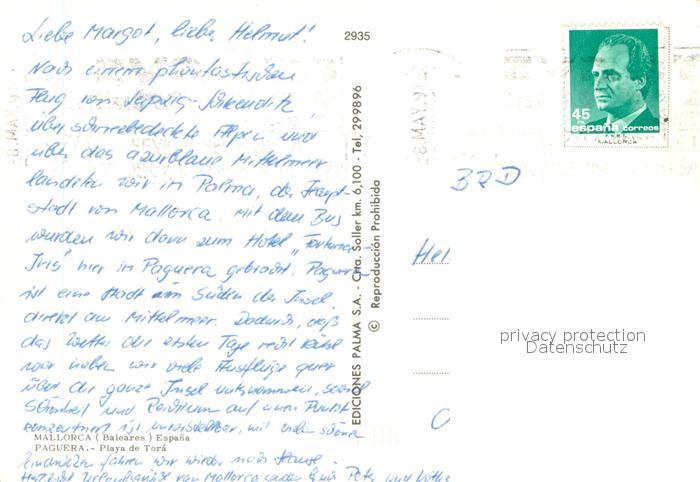 Liebe Margot, liebe Helmut!
Nach einem phantastischen
Flug von Leipzig-Schkeuditz
über schneebedeckte Alpen und
über das azurblaue Mittelmeer
landeten wir in Palma, der Haupt-
stadt von Mallorca. Mit dem Bus
wurden wir dann zum Hotel
hier in Paguera gebracht. Paguera
ist eine Stadt im Süden der Insel,
direkt am Mittelmeer. Dadurch, daß
das Wetter die ersten Tage recht kühl
war haben wir viele Ausflüge quer
über die ganze Insel unternommen, soviel
Schönheit und Reichtum auf einen Punkt
konzentriert ist unvorstellbar, mit vielen schönen
Eindrücken fahren wir wieder nach Hause.
Herzliche Urlaubsgrüße von Mallorca senden Euch Peter und
MALLORCA (Baleares) España
PAGUERA.- Playa de Torá
2935
EDICIONES PALMA S.A. - Ctra. Soller km. 6,100 - Tel, 299896
© Reproducción Prohibida
8.MAY.9
45
PTA
españa correos
MALLORCA
BRD
Hel
privacy protection
Datenschutz